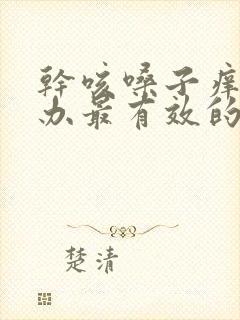 幹咳嗓子痒
办最有效的
楚清